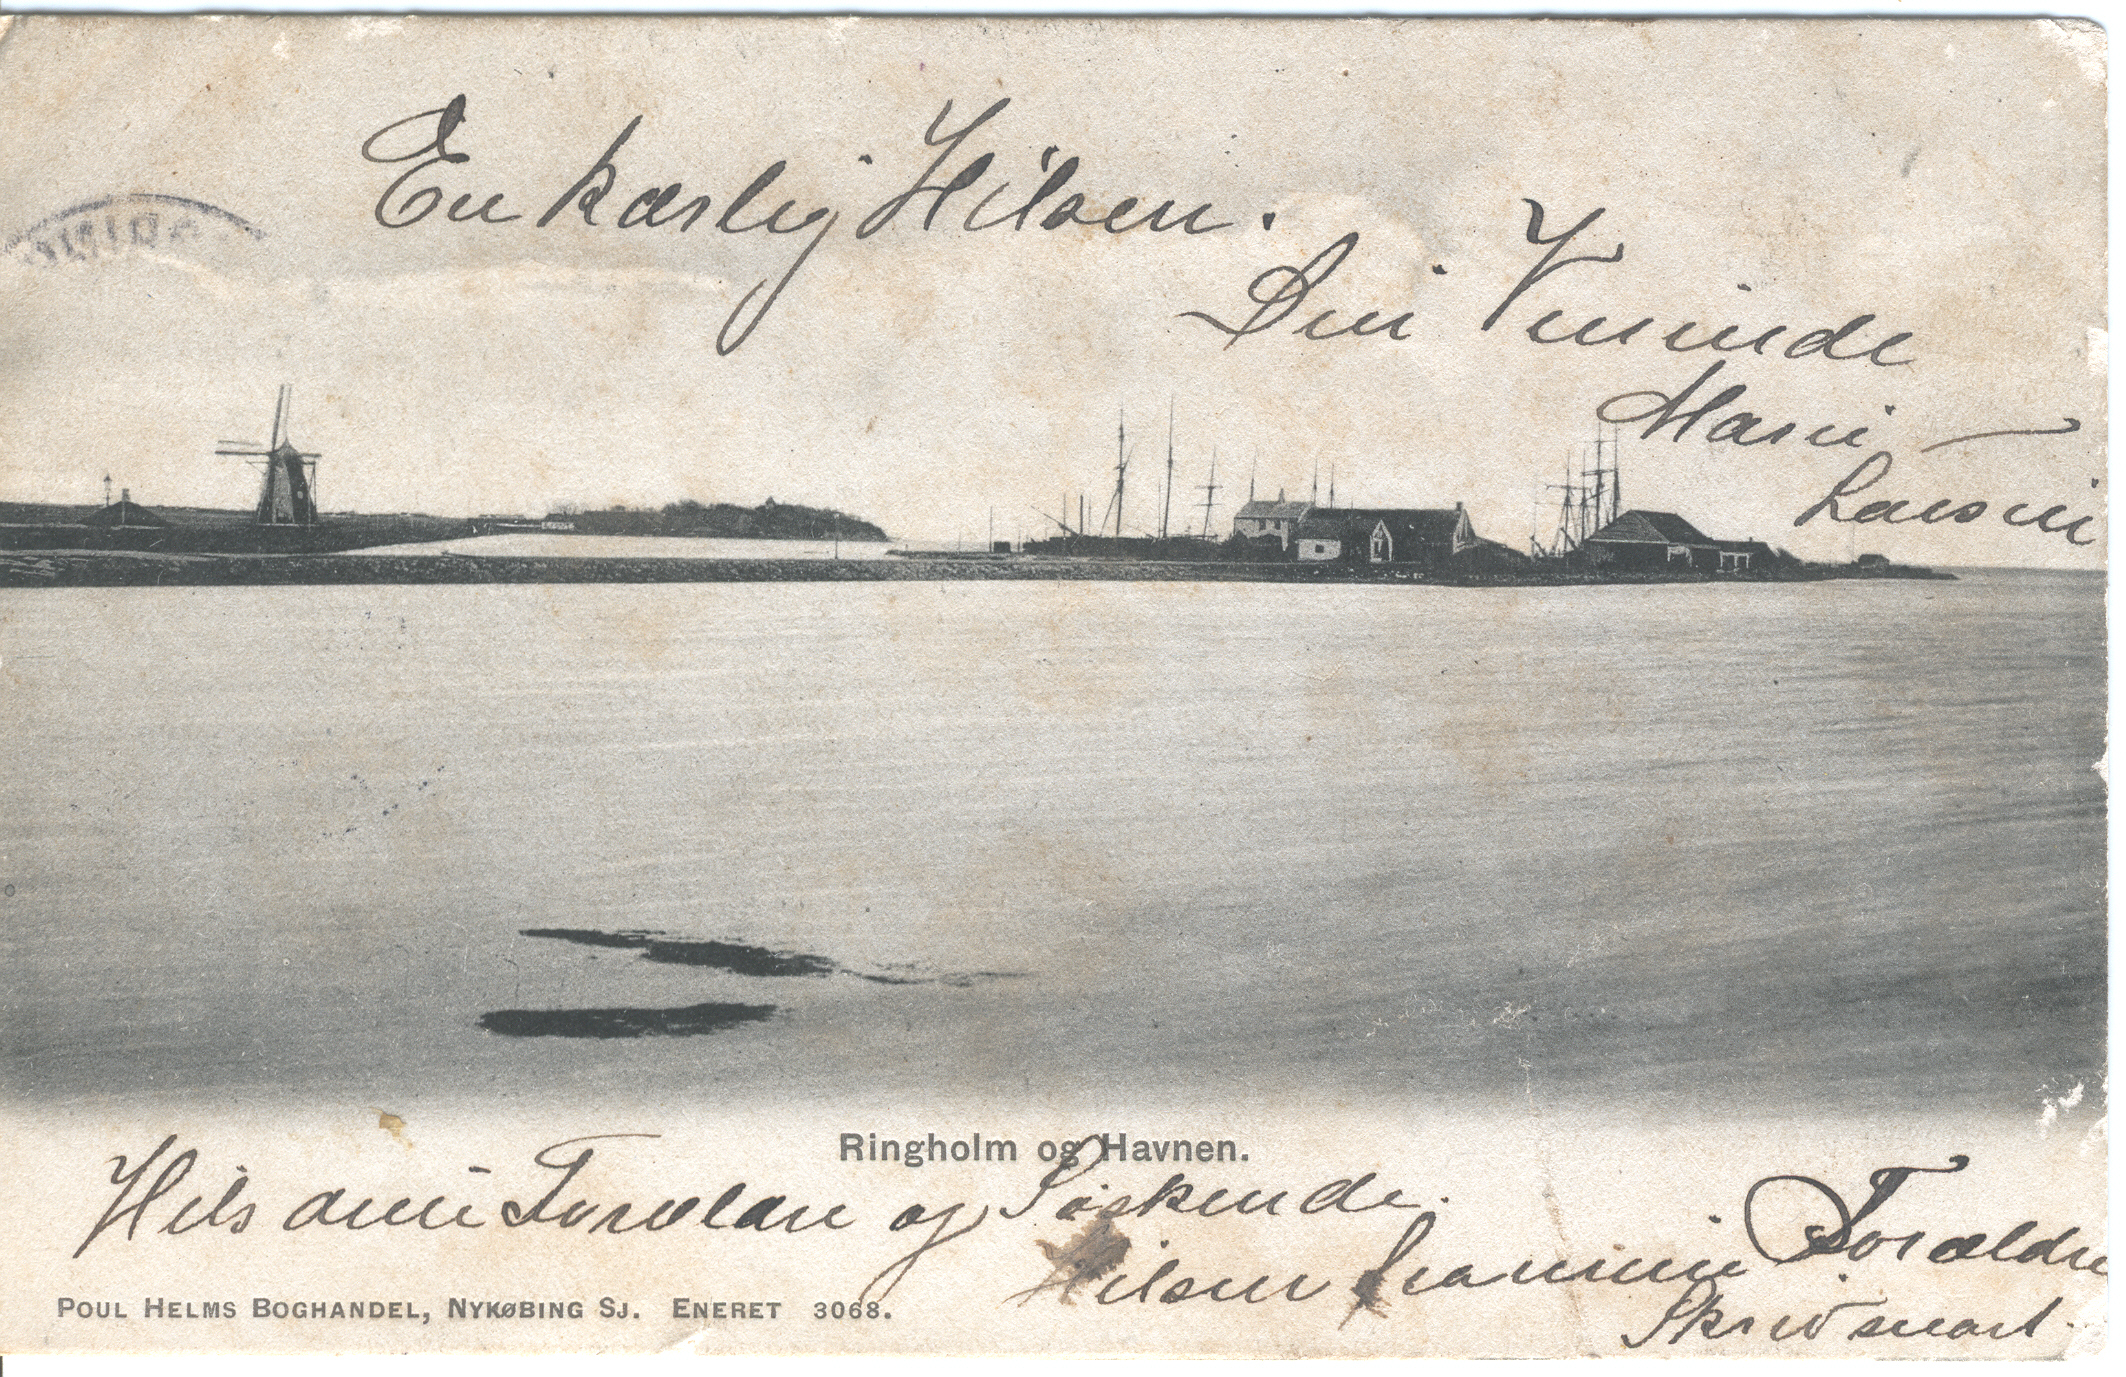 En kærlig Hilsen.
Din Veninde
Marie
Larsen
Ringholm og Havnen.
Hils dine Forældre og Søskende.
Hilsen fra mine Forældre
Skriv snart.
POUL HELMS BOGHANDEL, NYKØBING SJ. ENERET 3068.